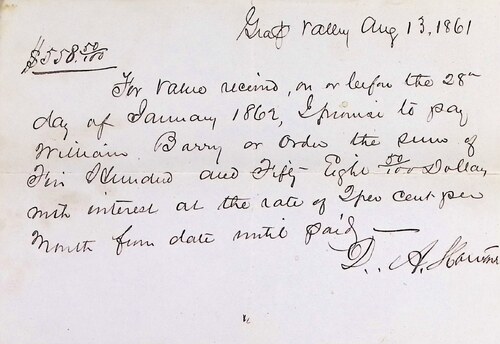 Grass Valley Aug 13, 1861
$558.50/100
For value receivd, on or before the 28th
day of January 1862, I promise to pay
William Barry or Order the sum of
Five Hundred and Fifty Eight 50/100 Dollars
with interest at the rate of 2 per cent per
Month from date until paid —
D. A.